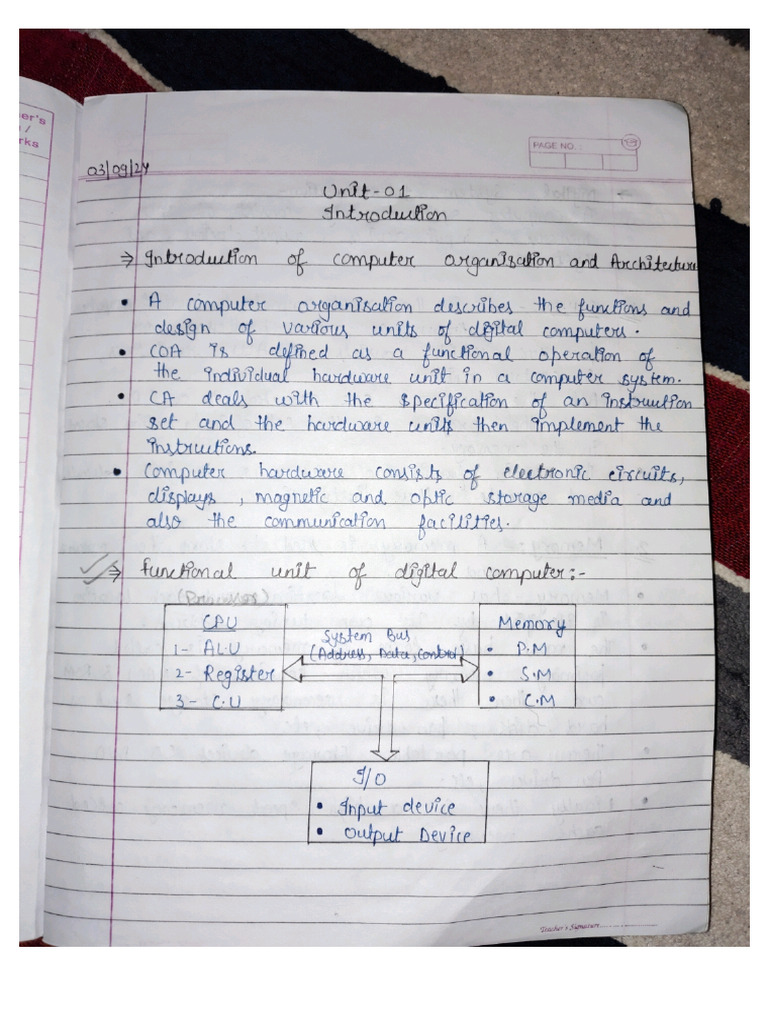 er's
/
rks
PAGE NO.:
03/09/24
Unit-01
Introduction
⇒ Introduction of computer organisation and Architecture
• A computer organisation describes the functions and
design of various units of digital computers.
• COA is defined as a functional operation of
the individual hardware unit in a computer system.
• CA deals with the specification of an instruction
set and the hardware units then implement the
instructions.
• Computer hardware consists of electronic circuits,
displays, magnetic and optic storage media and
also the communication facilities.
⇒ functional unit of digital computer:-
CPU
1- ALU
2- Register
3- C.U
System Bus
(Address, Data, Control)
Memory
• P.M
• S.M
• C.M
I/O
• Input device
• Output Device
Teacher's Signature